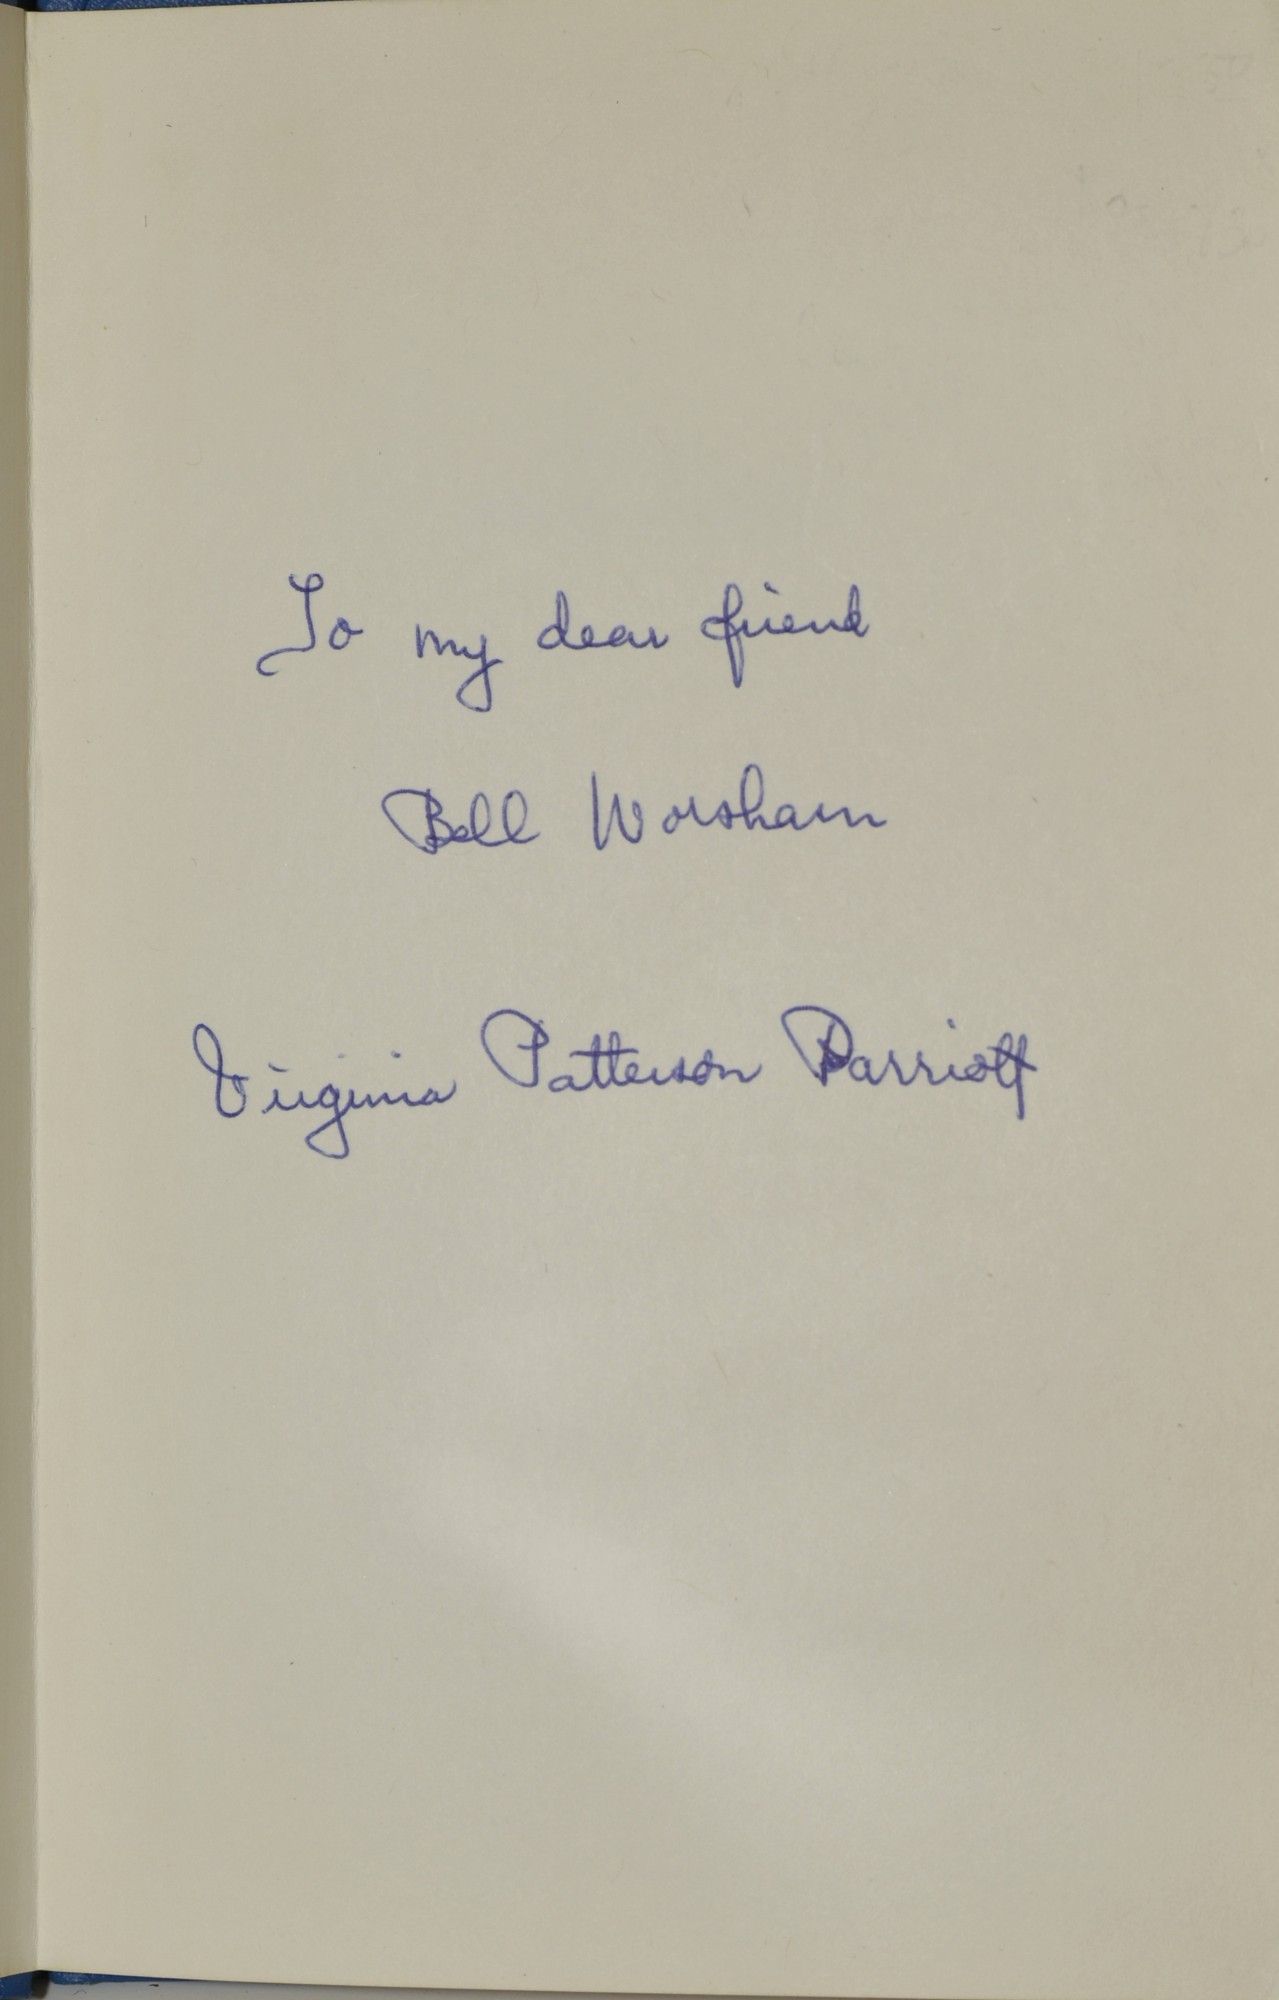 To my dear friend
Bell Worsham
Virginia Patterson Parriott